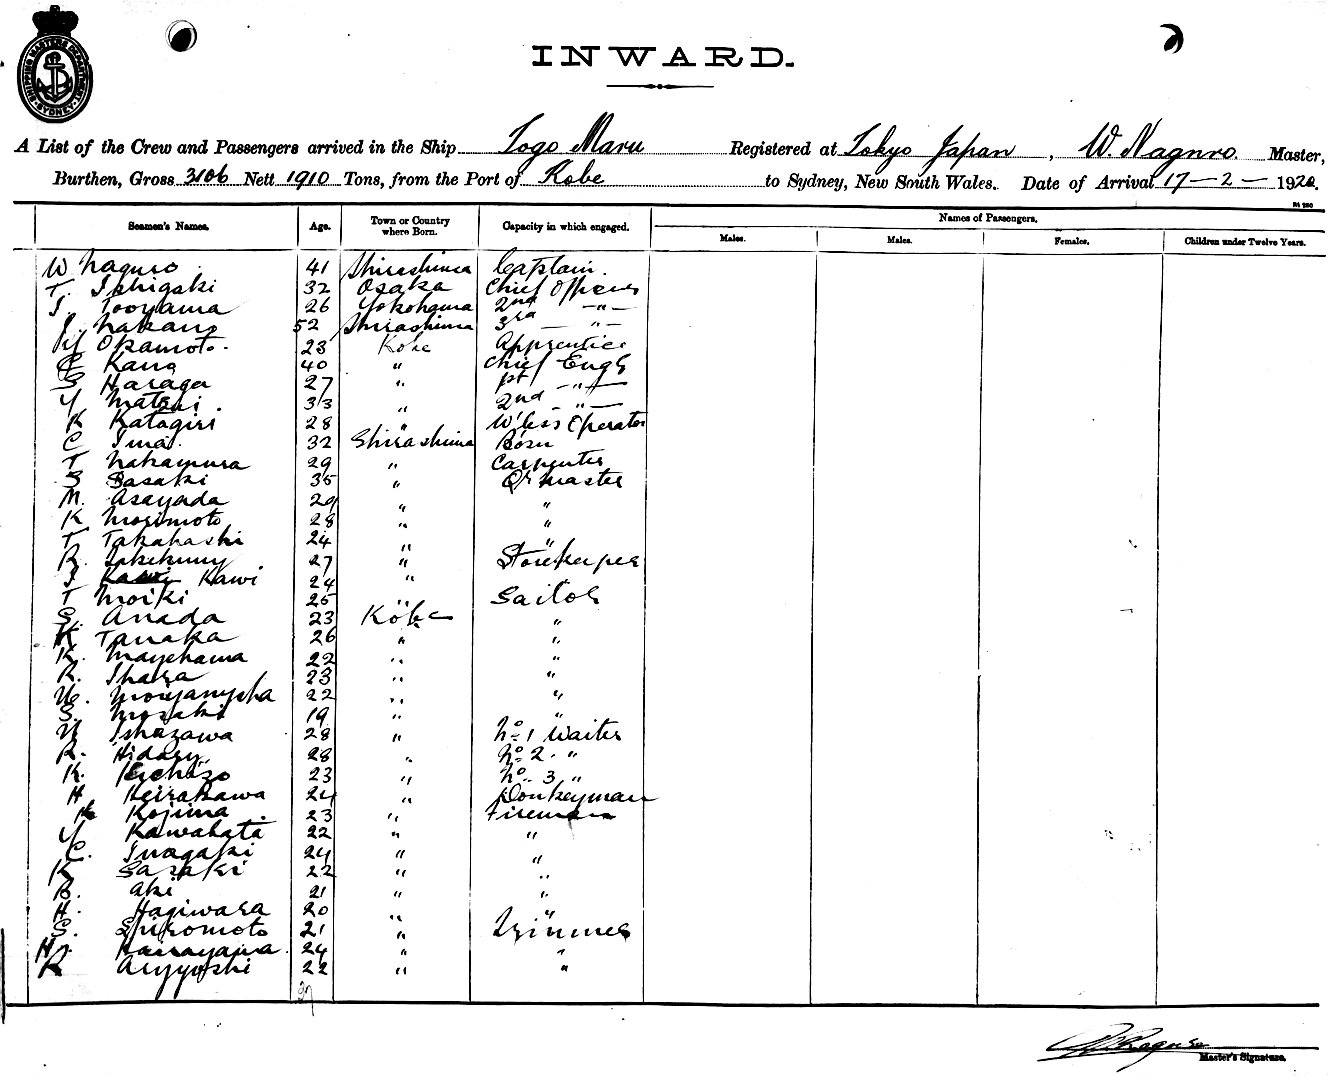 SHIPPING MASTERS DEPARTMENT SYDNEY
INWARD.
A List of the Crew and Passengers arrived in the Ship Togo Maru Registered at Tokyo Japan, W. Naguro. Master,
Burthen, Gross 3106 Nett 1910 Tons, from the Port of Kobe to Sydney, New South Wales. Date of Arrival 17-2-1920.
Seamen's Names. Age. Town or Country where Born. Capacity in which engaged. Names of Passengers.
Males. Males. Females. Children under Twelve Years.
W Naguro 41 Shirashima Captain.
T. Ishigaki 32 Osaka Chief Officer
T. Tooyama 26 Yokohama 2nd -"-
J. Nakano 52 Shirashima 3rd -"-
Y Okamoto. 23 Kobe Apprentice
Kano 40 " Chief Engr
S Haraga 27 " 1st -"-
Y Matsui. 33 " 2nd -"-
K Katagiri 28 " W'less Operator
C Ima. 32 Shirashima Bosn
T Nakamura 29 " Carpenter
S Sasaki 35 " Qr Master
M. Asayada 29 " "
K Morimoto 28 " "
T Takahashi 24 " "
R. 27 " Storekeeper
Kawi 24 "
T Moiki 25 " Sailor
S. Anada 23 Kobe "
K Tanaka 26 " "
K. Mayehama 22 " "
R. Ihara 23 " "
22 " "
S. 19 " "
Ishazawa 28 " No 1 Waiter
R. Hidary 28 " No 2. "
K. Keichizo 23 " No. 3 "
H Keirakawa 24 " Donkeyman
Kojima. 23 " Fireman
Y Kawahata 22 " "
C. Inagaki 24 " "
K Sasaki 22 " "
B. Aki 21 " "
H. Hagiwara 20 " "
S. Shiromoto 21 " Trimmer
H. 24 " "
R 22 " "
37
W Naguro
Master's Signature.